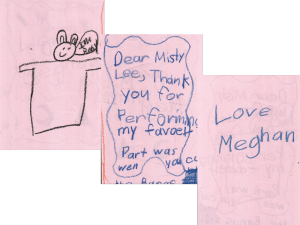 I'm
Dear Misty
Lee, Thank
you for
Performing
my
Part was
wen you
the
Love
Meghan